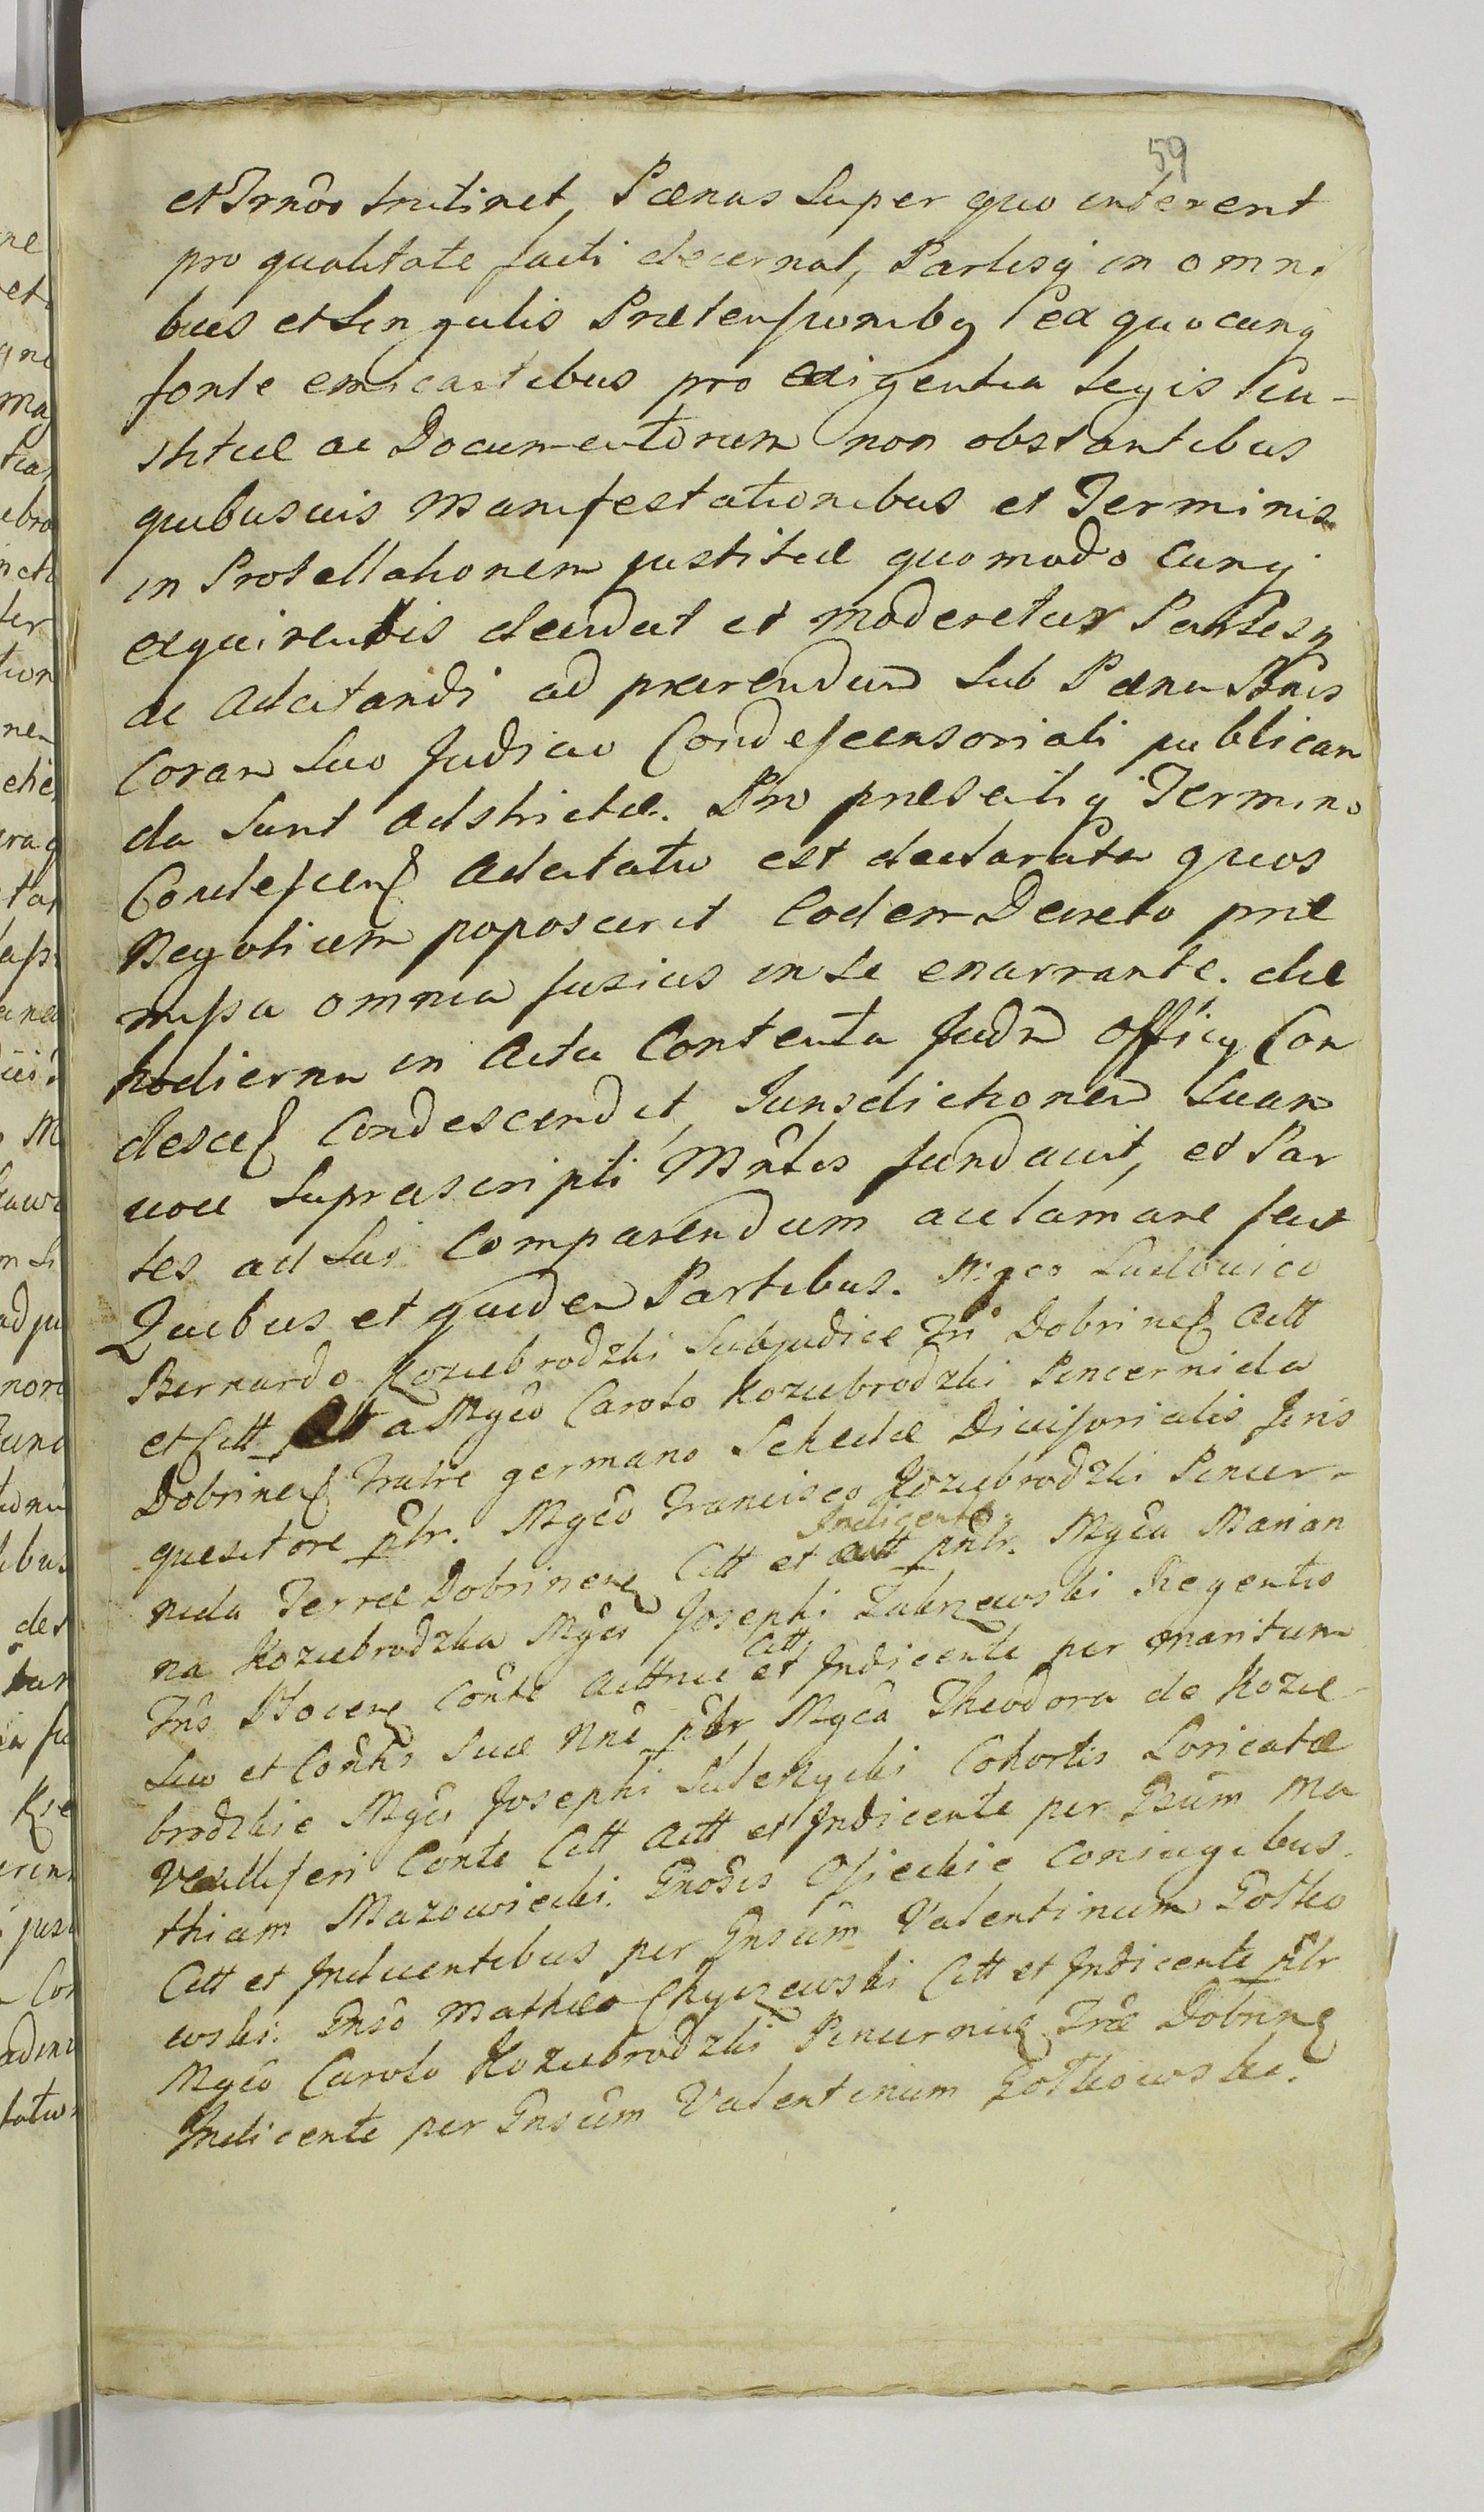 59
et Trnõs trutinet, Pænas super quo interent
pro qualitate facti decernat, Partesq in omni
bus et singulis Prætensionibq ex quocunq
fonte emicantibus pro exigentia legis Iu-
stitiæ ac Documentorum non obstantibus
quibusuis Manifestationibus et Terminis
in Protellationem justitiæ quomodo cunq
exquirentis decidat et moderetur Partesq
ac Adcitandi ad parendum sub Pæna
Coram suo Judicio Condescensoriali publican
da sunt Adstrictæ. Pro præsentiq Termino
Condescen Adcitatio est declarata quos
Negotium poposcerit Eodem Decreto præ
missa omnia fusius in se enarrante. die
hodierna in Actu Contenta Judm Officy Con
desce Condescendit, Jurisdictionem suam
uoce supræscripti Mrlis fundauit, et Par
tes ad sui Comparendum acclamare fecit
Quibus et quidem Partibus. Mgco Ludouico
Bernardo Kozuebrodzki Subjudice Tri Dobrinen Actt
et Citt a Mgco Carolo Kozuebrodzki Pincernida
Dobrinen Fratre germano Schedæ Diuisorialis Juris
quesitore pltr. Mgco Francisco Kozuebrodzki Pincer-
nida Terræ Dobrinen Citt et Indicente pnlr. Mgca Marian
na Kozuebrodzka Mgci Josephi Zakrzewski Regentis
Tris Plocen Conte Acttrice Citt et Indicente per maritum
suo et Contis suæ Nne pltr Mgca Theodora de Kozie
brodzkie Mgci Josephi Cohortis Loricatæ
Vexilliferi Conte Citt Actt et Indicente per Gsum Ma
thiam Mazowiecki. Gnosis Osieckie Coniugibus
Citt et Indicentibus per Gnsum Valentinum Gotko
wski. Gnso Mathæo Chyczewski Citt et Indicente pltr
Mgco Carolo Kozuebrodzki Pincernida Træ Dobrinen
Indicente per Gnsum Valentinum Gotkowski.